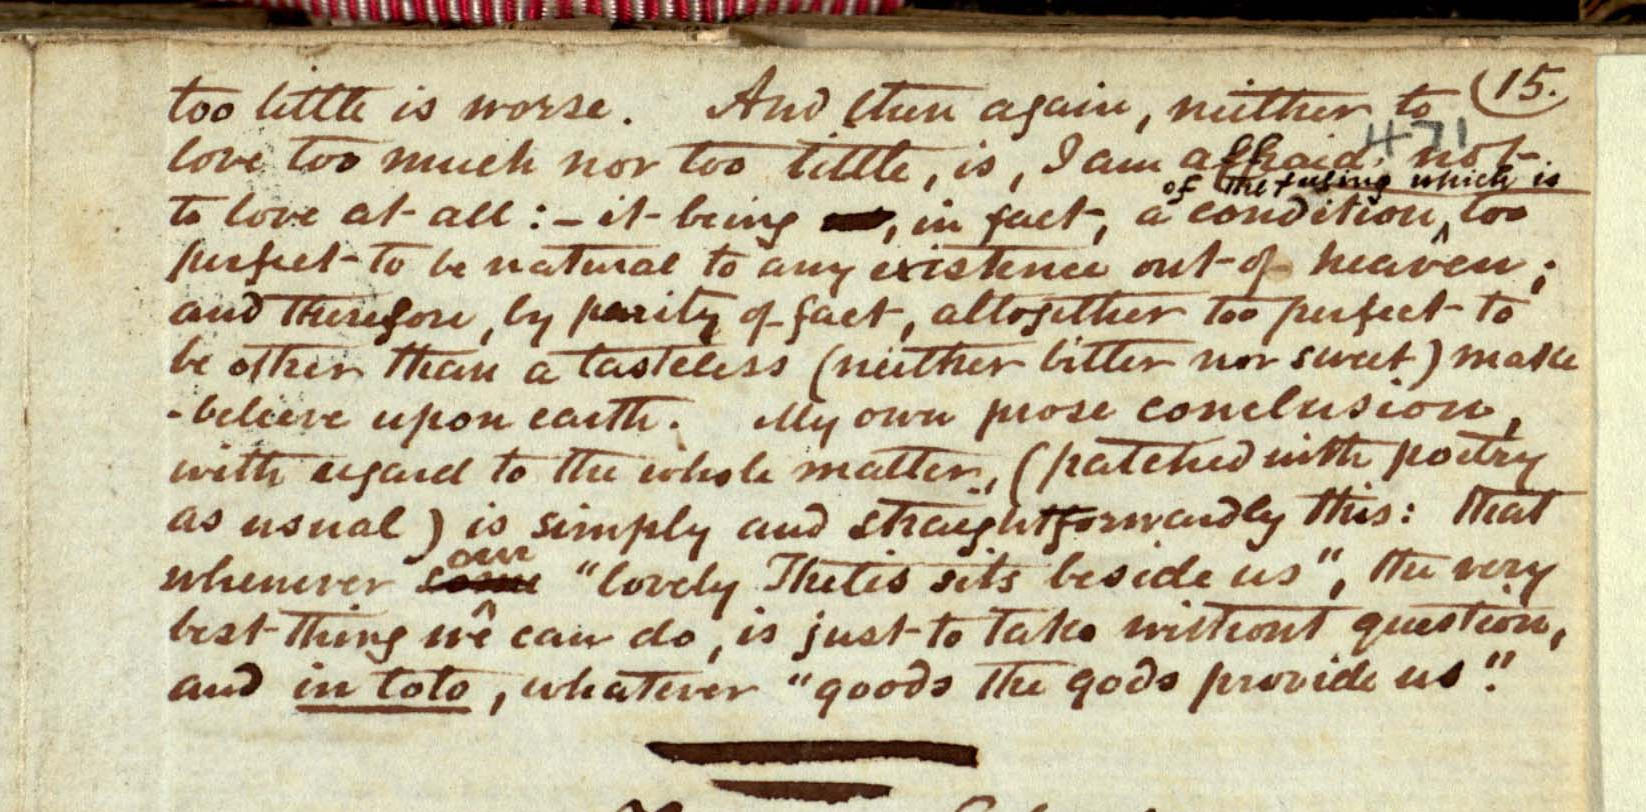 too little is worse. And then again, neither to (15.
471
love too much nor too little, is, I am afraid, not
of the feeling which is
to love at all :– it being , in fact, a condition ^ too
perfect to be natural to any existence out of heaven ;
and therefore, by parity of fact, altogether too perfect to
be other than a tasteless (neither bitter nor sweet) make
-beleive upon earth. My own prose conclusion,
with regard to the whole matter, (patched with poetry
as usual) is simply and straightforwardly this: that
our
whenever "lovely Thetis sits beside us", the very
best thing we can do, is just to take without question,
and in toto, whatever "goods the gods provide us".